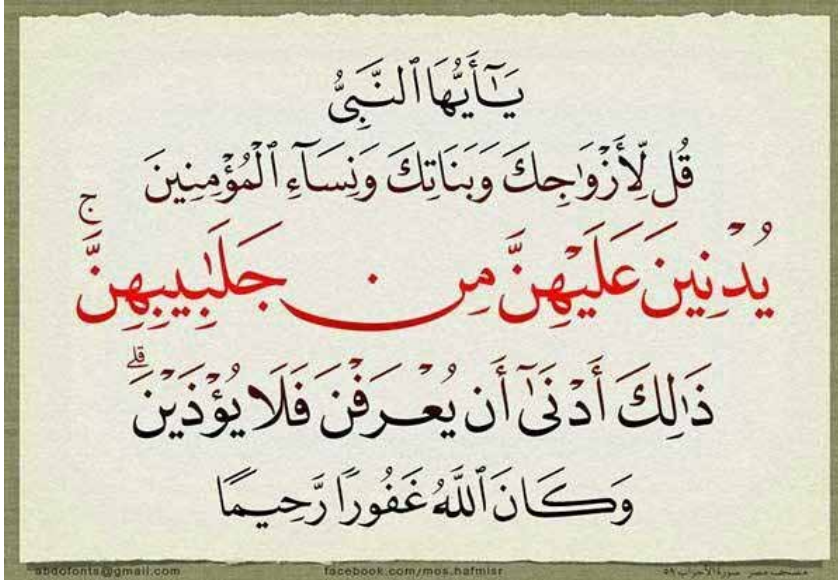 يَـٰٓأَيُّهَا ٱلنَّبِىُّ
قُل لِّأَزْوَٰجِكَ وَبَنَاتِكَ وَنِسَآءِ ٱلْمُؤْمِنِينَ
يُدْنِينَ عَلَيْهِنَّ مِن جَلَـٰبِيبِهِنَّ ۚ
ذَٰلِكَ أَدْنَىٰٓ أَن يُعْرَفْنَ فَلَا يُؤْذَيْنَ ۗ
وَكَانَ ٱللَّهُ غَفُورًا رَّحِيمًا
abdofonts@gmail.com facebook.com/mos.hafmisr مصحف مصر سورة الأحزاب ٥٩